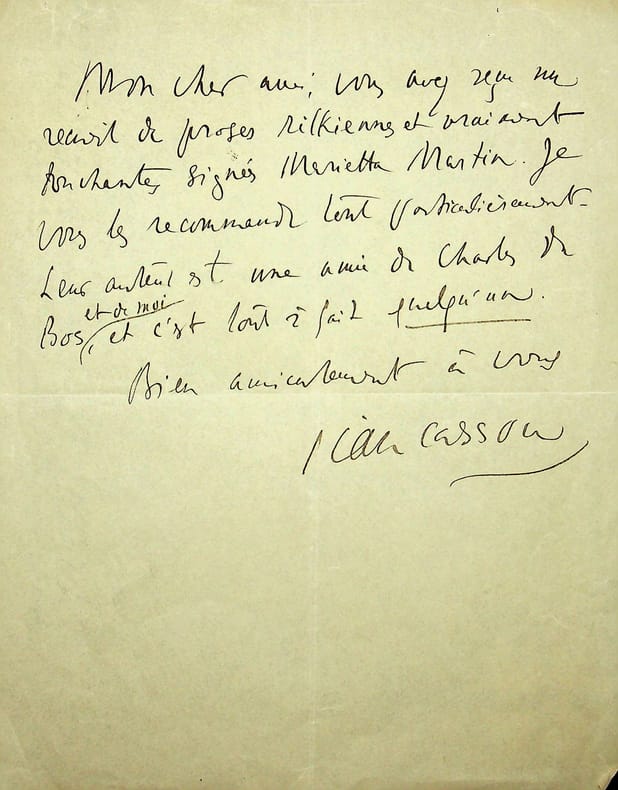 Mon cher ami, vous avez reçu un
recueil de proses rilkiennes et vraiment
touchantes signés Marietta Martin. Je
vous les recommande tout particulièrement.
Leur auteur est une amie de Charles Du
et de moi
Bos, et c'est tout à fait quelqu'un.
Bien amicalement à vous
Jean Cassou